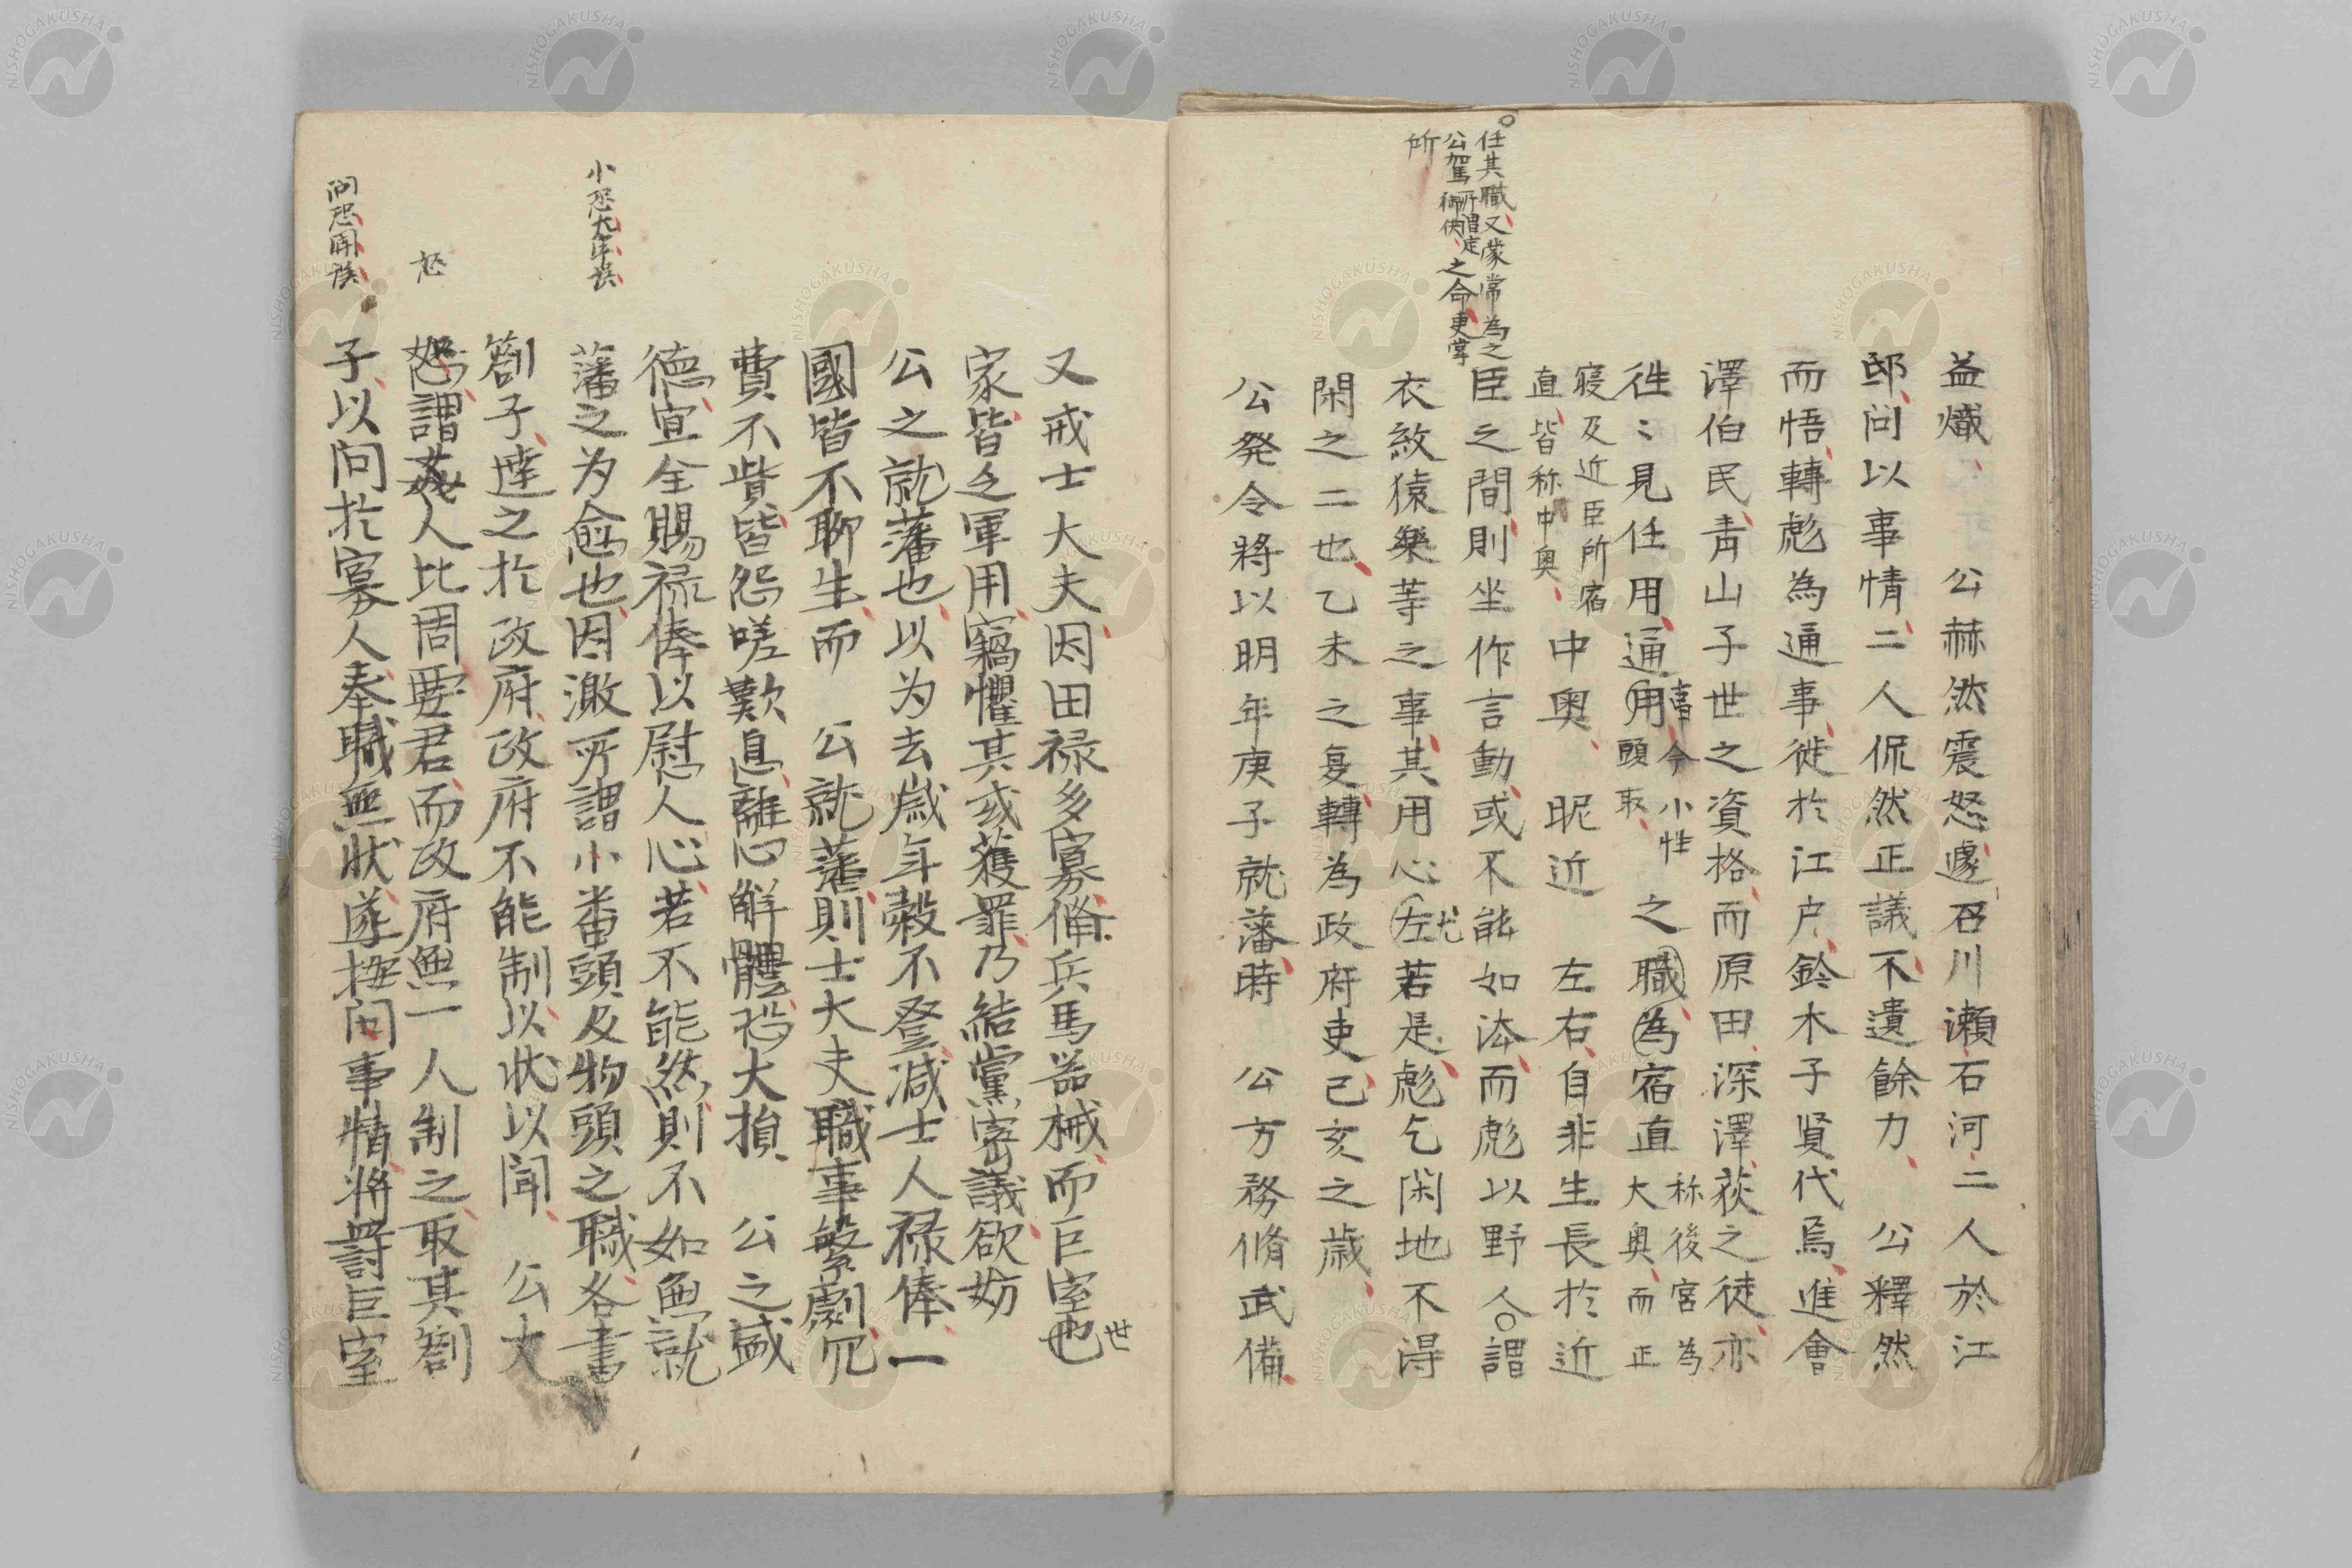 益熾、　公赫然震怒、遽召川瀬石河二人於江
邸、問以事情、二人侃然正議、不遺餘力、　公釋然
而悟、轉彪為通事、徙於江戸、鈴木子賢代焉、進會
澤伯民青山子世之資格、而原田深澤荻之徒亦
徃〻見任用、通用事今小性頭取、之職為宿直称後宮為大奥、而正
寝及近臣所宿直、皆称中奥、中奥、昵近　左右、自非生長於近
臣之間、則坐作言動、或不能如法、而彪以野人○謂
衣紋猿樂等之事、其用心尤左若是、彪乞閑地不得
閑之二也、乙未之夏、轉為政府吏、己亥之歳、
公発令將以明年庚子就藩、時　公方務脩武備、
○任其職、又蒙常為之
公駕所謂定御供、之命、更掌
所
又戒士大夫因田禄多寡脩兵馬器械、而巨室世也
家皆乏軍用、竊懼其或獲罪、乃結黨密議、欲妨
公之就藩也、以为去歳年穀不登、减士人禄俸、一
國皆不聊生、而　公就藩、則士大夫職事繁劇、冗
費不貲、皆怨嗟歎息、離心解體、恐大損　公之盛
德、宜全賜禄俸以慰人心、若不能然、則不如無就
藩之为愈也、因激所謂小番頭及物頭之職、各書
劄子、達之於政府、政府不能制、以状以聞、　公大
怒、謂姦人比周要君、而政府無一人制之、取其劄
子、以問於寡人奉職無状、遂按問事情、將罸巨室
怒